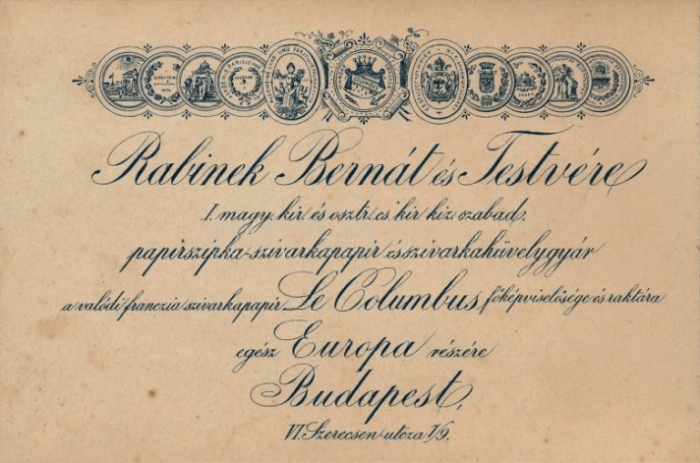 Rabinek Bernát és Testvére
I. magy. kir. és osztr. cs. kir. kiz. szabad.
papirszipka-szivarkapapir és szivarkahüvelygyár
a valódi franczia szivarkapapir Le Columbus főképviselősége és raktára
egész Europa részére
Budapest,
VI. Szerecsen-utcza 7/9.